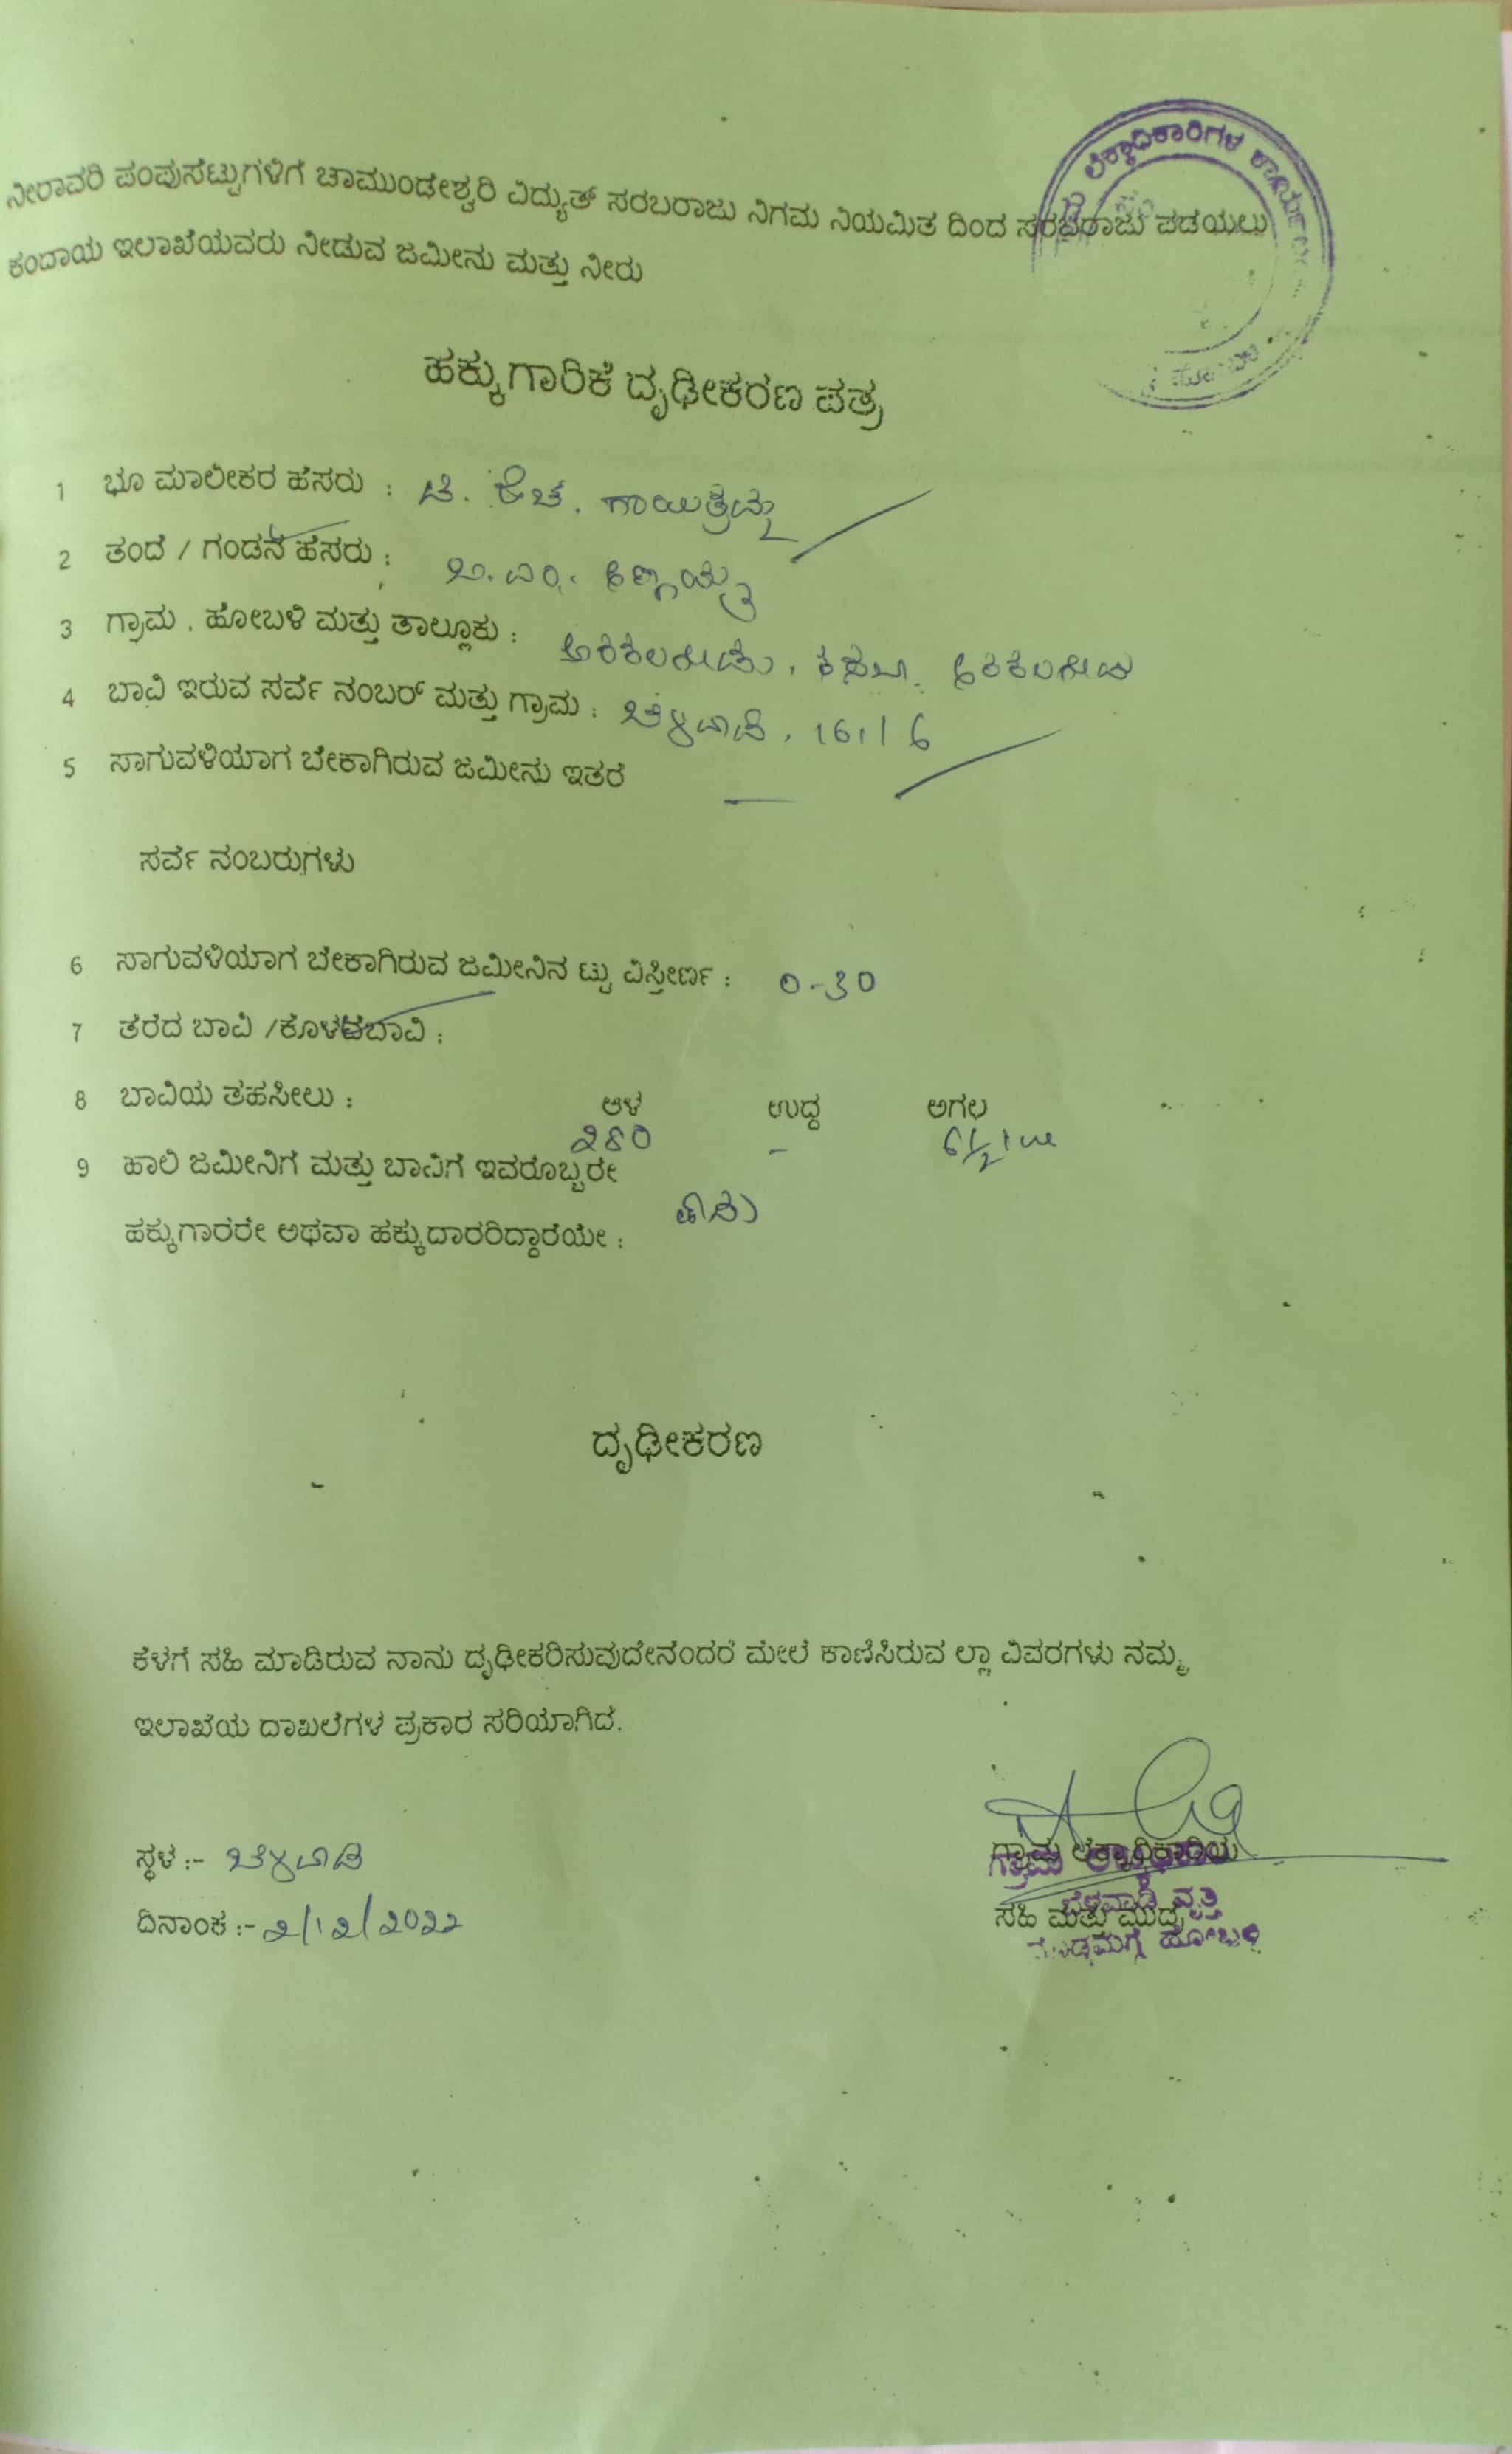 ಲೆಕ್ಕಾದಿಕಾರಿಗಳ ಕಾರ್ಯ
ನೀರಾವರಿ ಪಂಪುಸೆಟ್ಟುಗಳಿಗೆ ಚಾಮುಂಡೇಶ್ವರಿ ವಿದ್ಯುತ್ ಸರಬರಾಜು ನಿಗಮ ನಿಯಮಿತ ದಿಂದ ಸರಬರಾಜು ಪಡೆಯಲು
ಕಂದಾಯ ಇಲಾಖೆಯವರು ನೀಡುವ ಜಮೀನು ಮತ್ತು ನೀರು
ಹಕ್ಕುಗಾರಿಕೆ ದೃಢೀಕರಣ ಪತ್ರ
1 ಭೂ ಮಾಲೀಕರ ಹೆಸರು : ಟಿ. ಕೆಚ. ಗಾಯಿತ್ರಮ್ಮ
2 ತಂದೆ / ಗಂಡನ ಹೆಸರು :
3 ಗ್ರಾಮ . ಹೋಬಳಿ ಮತ್ತು ತಾಲ್ಲೂಕು : ಅರಕಲಗೂಡು, ಕಸಬಾ, ಅರಕಲಗೂಡು
4 ಬಾವಿ ಇರುವ ಸರ್ವೆ ನಂಬರ್ ಮತ್ತು ಗ್ರಾಮ : ಬೆಳವಾಡಿ, 161/6
5 ಸಾಗುವಳಿಯಾಗ ಬೇಕಾಗಿರುವ ಜಮೀನು ಇತರೆ —
ಸರ್ವೆ ನಂಬರುಗಳು
6 ಸಾಗುವಳಿಯಾಗ ಬೇಕಾಗಿರುವ ಜಮೀನಿನ ಟ್ಟು ವಿಸ್ತೀರ್ಣ : 0-30
7 ತೆರೆದ ಬಾವಿ /ಕೊಳವೆಬಾವಿ :
8 ಬಾವಿಯ ತಹಸೀಲು : ಆಳ ಉದ್ದ ಅಗಲ
280 - 6 1/2
9 ಹಾಲಿ ಜಮೀನಿಗೆ ಮತ್ತು ಬಾವಿಗೆ ಇವರೊಬ್ಬರೇ
ಹಕ್ಕುಗಾರರೇ ಅಥವಾ ಹಕ್ಕುದಾರರಿದ್ದಾರೆಯೇ :
ದೃಢೀಕರಣ
ಕೆಳಗೆ ಸಹಿ ಮಾಡಿರುವ ನಾನು ದೃಢೀಕರಿಸುವುದೇನೆಂದರೆ ಮೇಲೆ ಕಾಣಿಸಿರುವ ಲ್ಲಾ ವಿವರಗಳು ನಮ್ಮ
ಇಲಾಖೆಯ ದಾಖಲೆಗಳ ಪ್ರಕಾರ ಸರಿಯಾಗಿದೆ.
ಸ್ಥಳ :- ಬೆಳವಾಡಿ
ದಿನಾಂಕ :- 2/12/2022
ಗ್ರಾಮ ಲೆಕ್ಕಾಧಿಕಾರಿಯ
ಬೆಳವಾಡಿ ವೃತ್ತ
ಸಹಿ ಮತು ಮುದ್ರೆ
ಹೋಬಳಿ